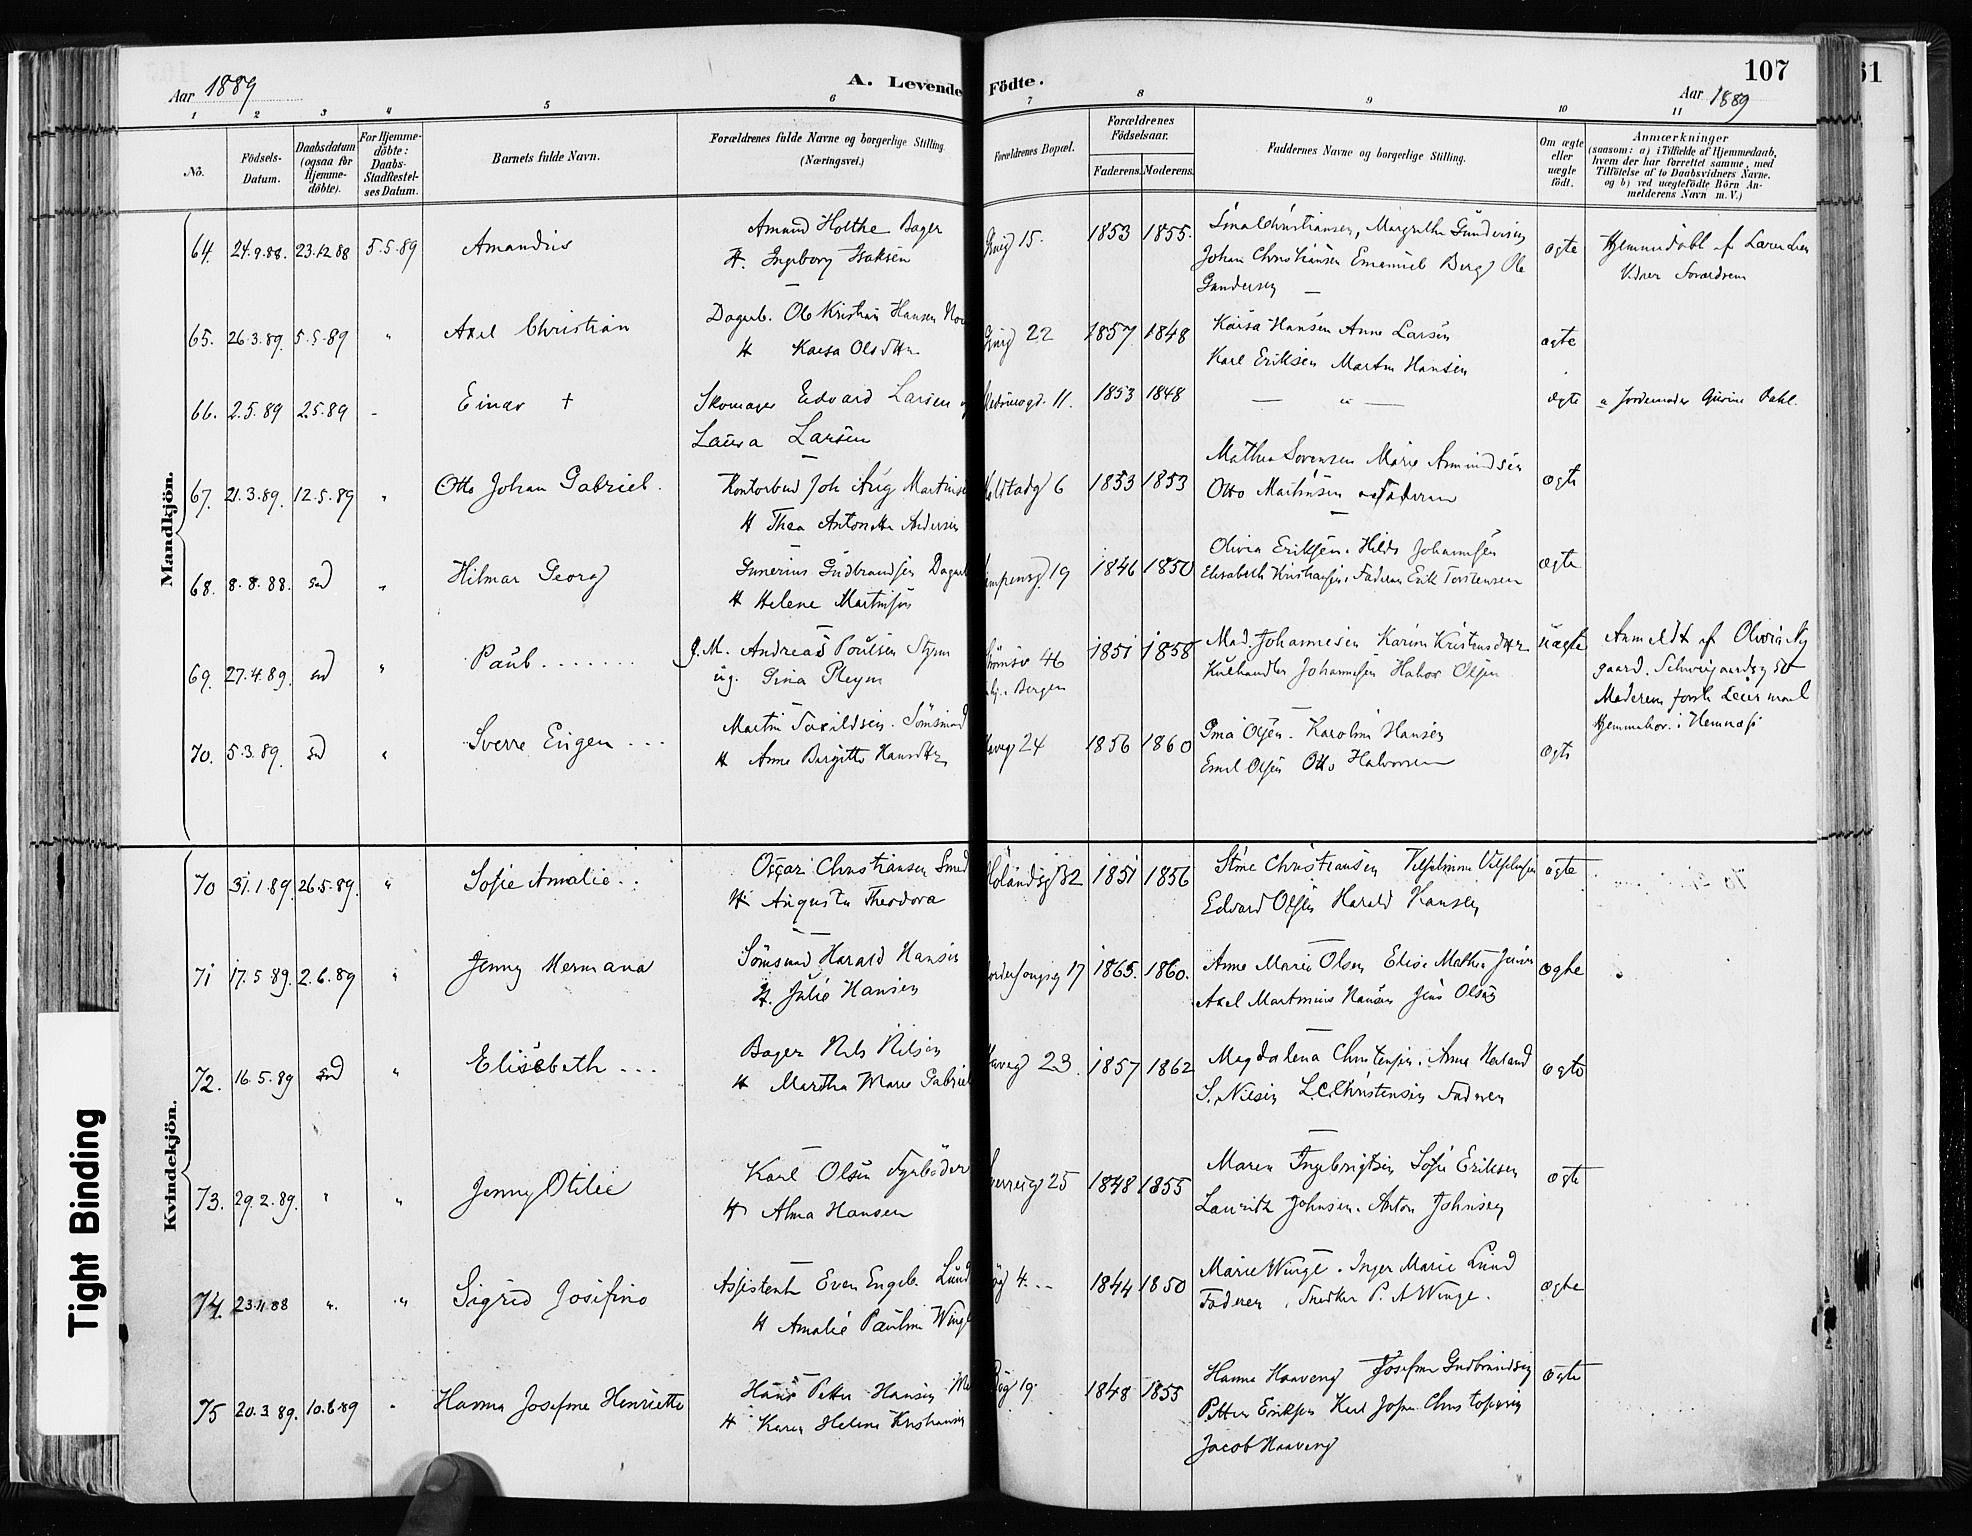 Aar 1889
A. Levende Födte.
107
61
Aar 1889
1 2 3 4 5 6 7 8 9 10 11
No.
Födsels-Datum.
Daabsdatum (ogsaa for Hjemme-döbte).
For Hjemme-döbte: Daabs-Stadfæstel-ses Datum.
Barnets fulde Navn.
Forældrenes fulde Navne og borgerlige Stilling.
(Næringsvei.)
Forældrenes Bopæl.
Forældrenes Födselsaar.
Faderens. Moderens.
Faddernes Navne og borgerlige Stilling.
Om ægte eller uægte födt.
Anmærkninger
(saasom: a) i Tilfælde af Hjemmedaab,
hvem der har forrettet samme, med
Tilföielse af to Daabsvidners Navne.
og b) ved uægtefödte Börn An-
melderens Navn m. V.)
Mandkjön.
64. 24.9.88. 23.12 88 5.5.89 Amandus Amund Holthe Bager 15. 1853 1855. Christiansen, Margrethe ægte Hjemmedøbt af
H. Ingeborg Isaksen Johan Christiansen Emanuel Berg Ole
Gundersen
65. 26.3.89. 5.5.89 " Axel Christian Dagarb. Ole Kristian Hansen 22 1857 1848 Kaisa Hansen Anne Larsen ægte
H Kaisa Olsdtr Karl Eriksen Martin Hansen
66. 2.5.89 2.5.89 - Einar + Skomager Edvard Larsen 11. 1853 1848 — " — ægte Jordemoder Dahl.
Laura Larsen
67. 21.3.89. 12.5.89 " Otto Johan Gabriel. Kontorbud Joh Aug 6 1853 1853 Mathea Sorensen Marie Amundsen ægte
H Thea Antonette Andersen Otto Martinsen Faderen
68. 8.8.88. sd " Hilmar Georg Gunerius Gudbrandsen 19 1846 1850 Olivia Eriksen. Hilda Johannesen ægte
H Helene Martinsen Elisabeth Faderen Erik Torstensen
69. 27.4.89. sd " Paul ....... Andreas Poulsen Styrm 46 1851 1858 Mad. Johannesen Karin uægte Anmeldt af Olivia Ny
ug. Gina Pleym Bergen Kulhandler Johannesen Halvor Olsen gaard. Schweigaardsg 50
Moderens
Hjemmehør. i Hemnæs
70. 5.3.89. sd " Sverre Eugen ... Martin Tømmermand 24 1856 1860 Olsen. Karoline Hansen ægte
H Anne Birgitte Hansdtr Emil Olsen Otto Halvorsen
Kvindekjön.
70 31.1.89. 26.5.89. " Sofie Amalie.. Oscar Christiansen Smed 32 1851 1856 Stine Christiansen ægte
H Augusta Theodora Edvard Olsen Harald Hansen
71 17.5 89. 2.6.89 " Jenny Hermana Harald Hansen 17 1865. 1860. Anne Marie Olsen Elise Mathea ægte
H. Julie Hansen Axel Martinius Hansen Jens Olsen
72. 16.5.89 sd " Elisebeth ... Bager Nils Nilsen 23. 1857 1862 Magdalena Christensen. Anna ægte
H Martha Marie S. Nilsen L.C. Christensen Faderen
73. 29.2.89. " " Jenny Otilie Karl Olsen Fyrböder 25 1848 1855 Maren Ingebrigtsen Sofie Eriksen ægte
H Alma Hansen Lauritz Johnsen. Anton Johnsen
74. 23.11.88 " " Sigrid Josefine Assistent Even Engeb. Lund 4. 1844 1850 Marie Winge. Inger Marie Lund ægte
H Amalie Pauline Faderen, Snedker P. A Winge.
75 20.3 89. 10.6.89 " Hanna Josefine Henriette Hans Petter Hansen 19. 1848 1855 Hanna Haaveng Josefine Gudbrandsen ægte
H Karen Helene Kristiansen Petter Eriksen Karl
Jacob Haaveng
Tight Binding